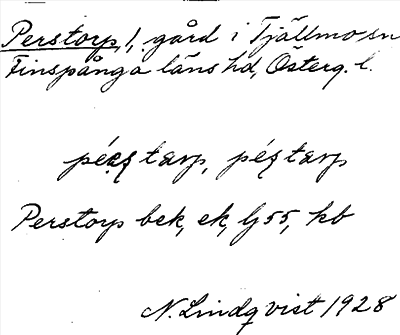 Perstorp, 1, gård i Tjällmo sn
Finspånga läns hd, Österg. l.
Perstorp bek, ek, lj 55, kb
N. Lindqvist 1928